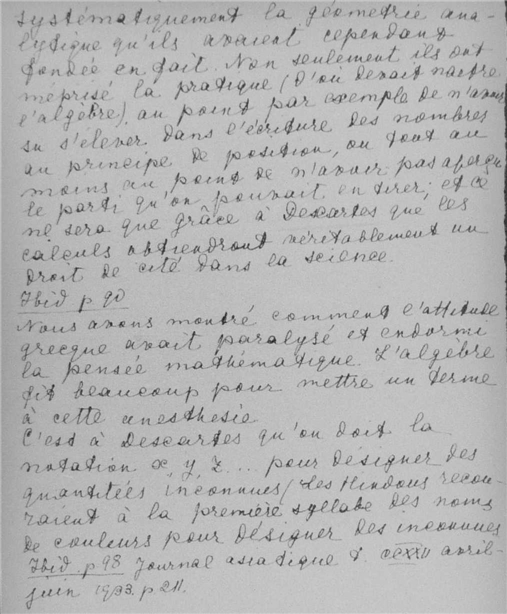 systématiquement la géometrie ana-
lytique qu'ils avaient cependant
fondée en fait. Non seulement ils ont
méprisé la pratique (d'où devait naître
l'algèbre), au point par exemple de n'avoir
su s'élever, dans l'écriture des nombres
au principe de position, ou tout au
moins au point de n'avoir pas aperçu
le parti qu'on pouvait en tirer; et ce
ne sera que grâce à Descartes que les
calculs obtiendront véritablement un
droit de cité dans la science.
Ibid p 90
Nous avons montré comment l'attitude
grecque avait paralysé et endormi
la pensée mathématique. L'algèbre
fit beaucoup pour mettre un terme
à cette anesthésie
C'est à Descartes qu'on doit la
notation x, y, z.... pour désigner des
quantitées inconnues/ Les Hindous recou-
raient à la première syllabe des noms
de couleurs pour désigner des inconnues
Ibid. p 98 Journal asiatique t. CCXXII avril-
juin 1933. p 211.